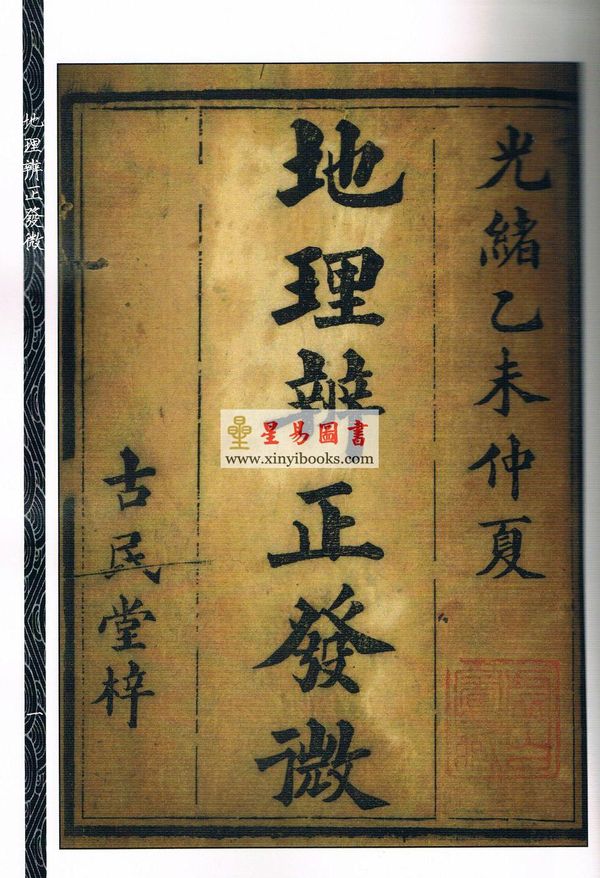 光緒乙未仲夏
地理辨正發微
古民堂梓
地理辨正發微
一
星易圖書
www.xinyibooks.com